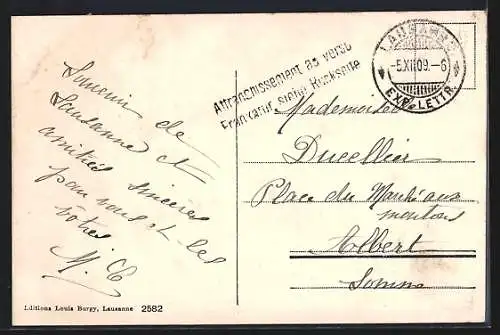 Souvenir de
Lausanne et
amitiés sincères
pour vous et les
vôtres
M. C
Affranchissement au verso
Frankatur siehe Rückseite
LAUSANNE
-5.XII.09.-6
EXP. LETTR.
Mademoiselle
Ducellier
Place du Marché aux
moutons
Albert
Somme
Editions Louis Burgy, Lausanne 2582